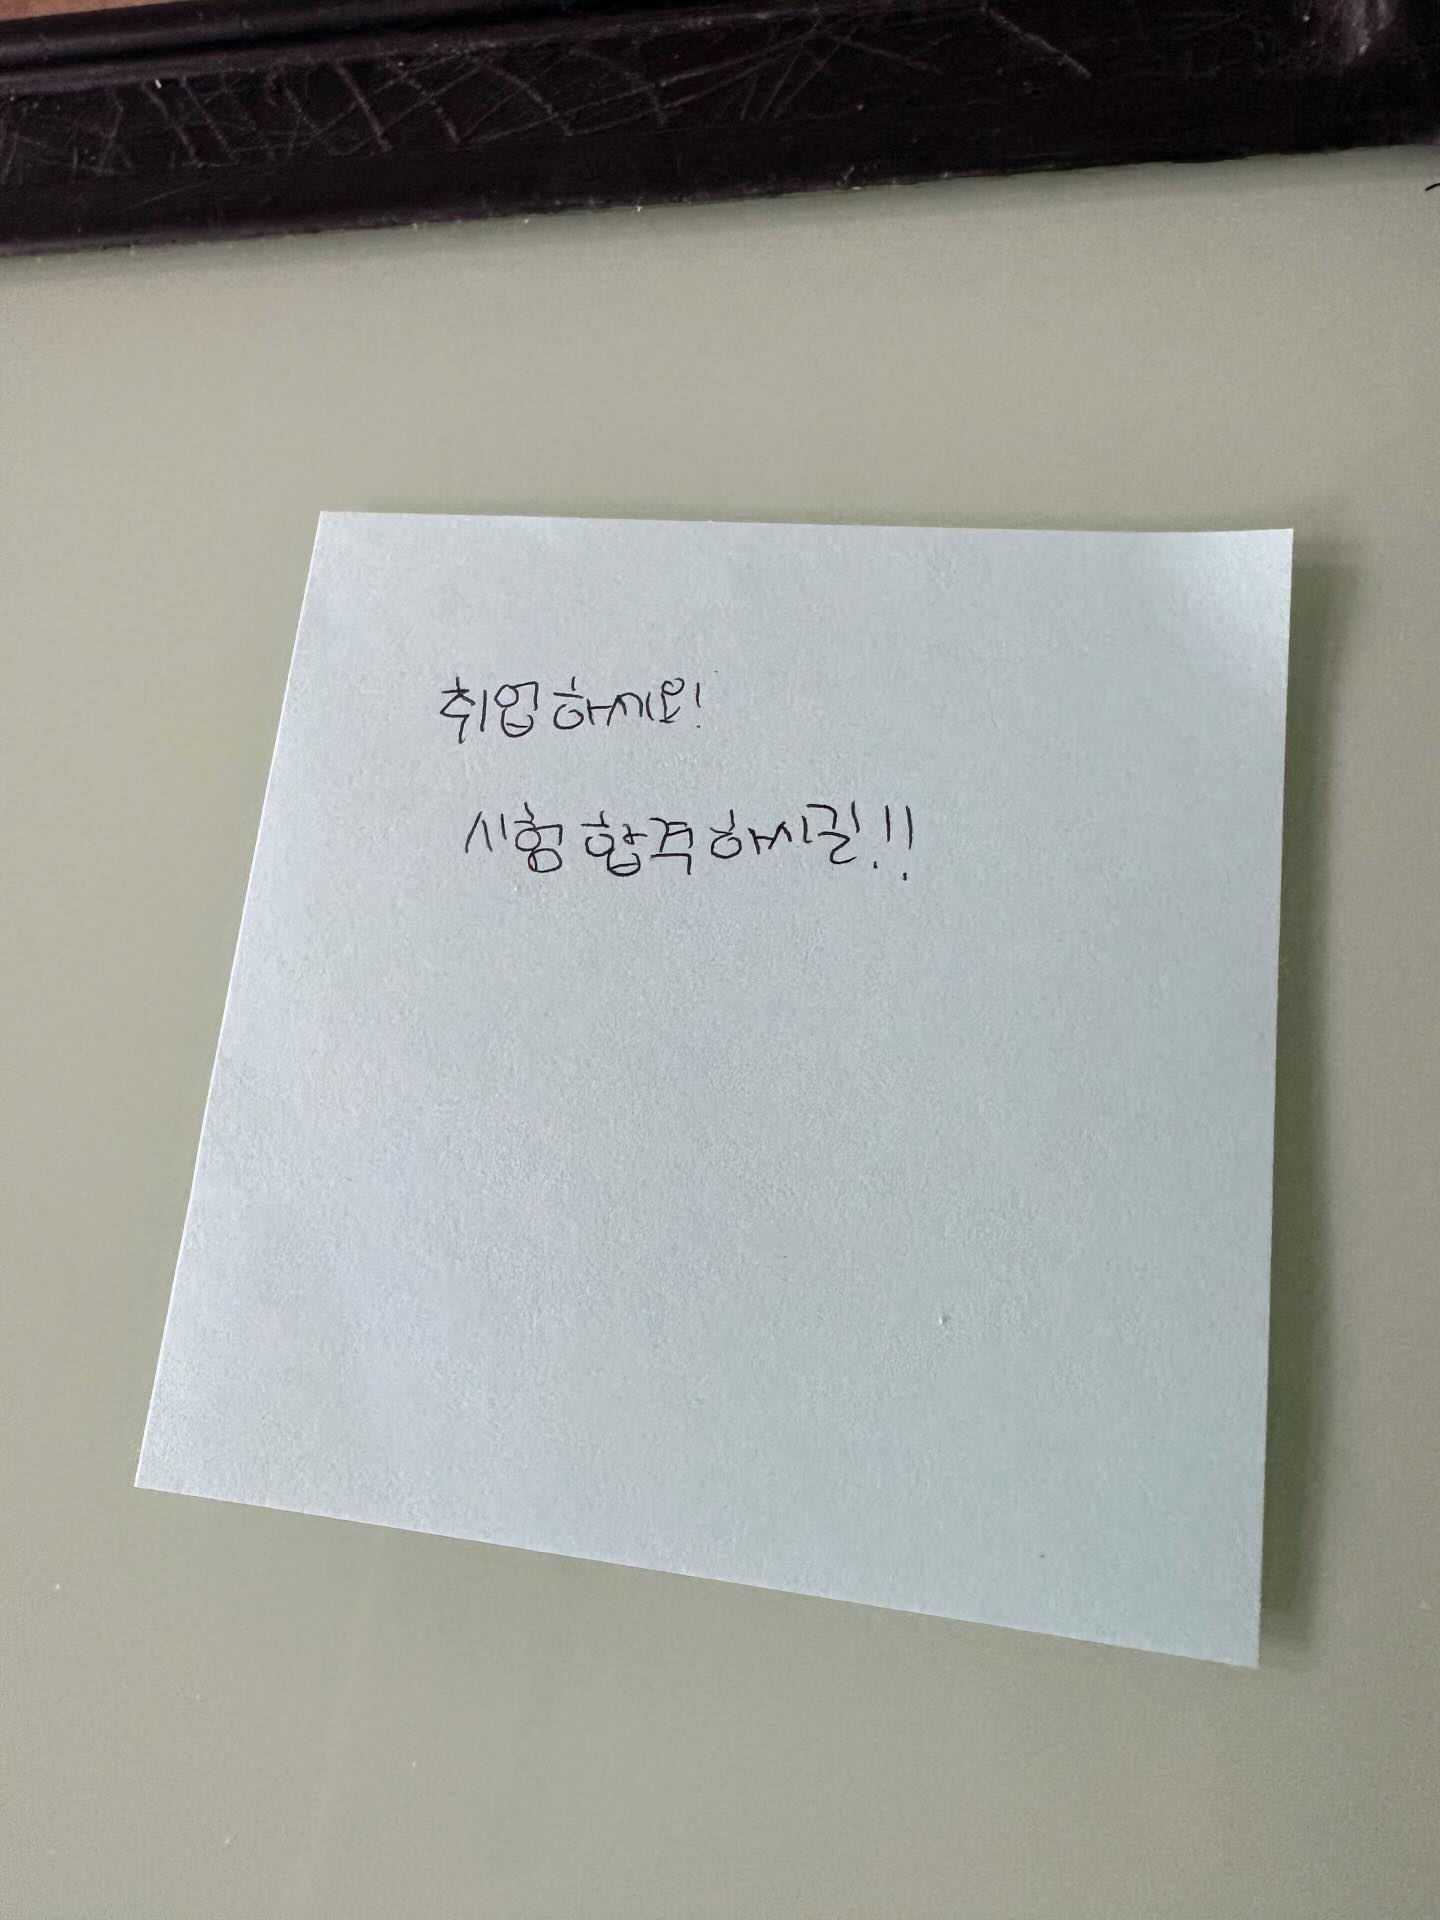 취업하세요!
시험 합격하시길!!